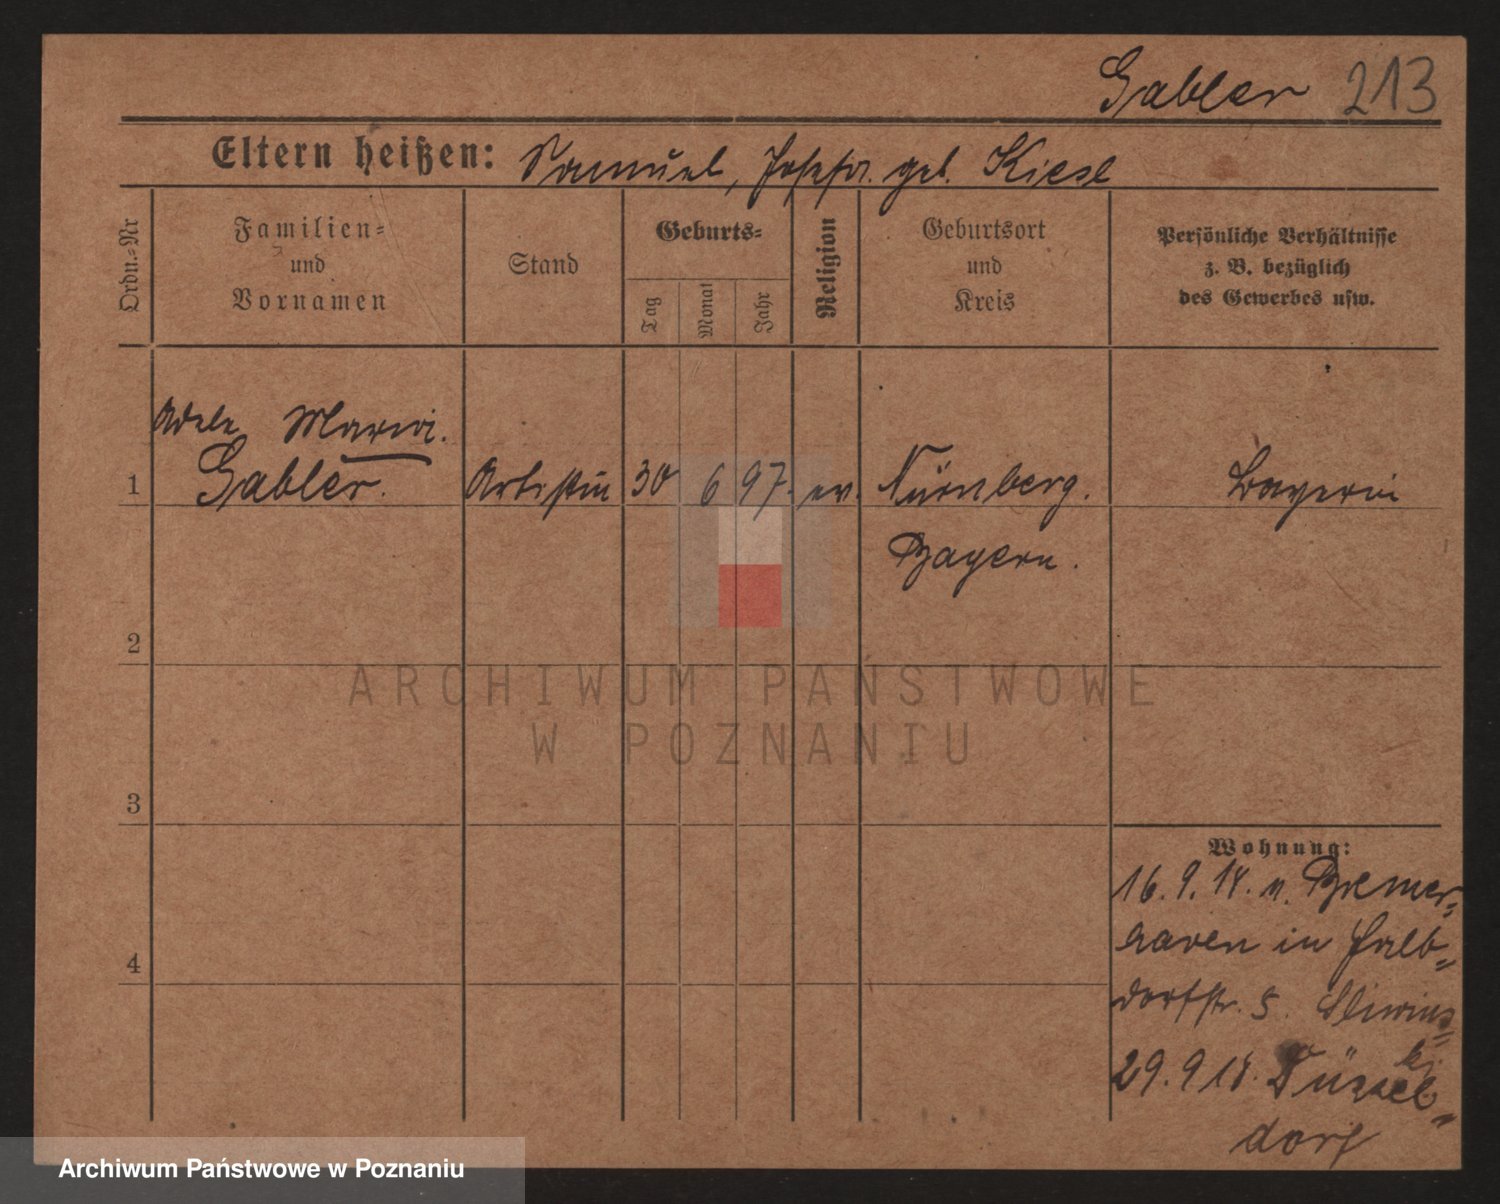 Gabler 213
Eltern heißen: Samuel, Josefa geb. Kiesl
Ordn.-Nr
Familien-
und
Vornamen
Stand
Geburts-
Tag
Monat
Jahr
Religion
Geburtsort
und
Kreis
Persönliche Verhältnisse
z. B. bezüglich
des Gewerbes usw.
Adele Maria.
1 Gabler. Artistin 30 6 97. ev. Nürnberg. Bayerin
Bayern.
2
3
4
Wohnung:
16. 9. 18. v. Bremer-
haven in Halb-
dorfstr. 5. Sliwins-
ki
29. 9 18. Düssel-
dorf
ARCHIWUM PAŃSTWOWE
W POZNANIU
Archiwum Państwowe w Poznaniu